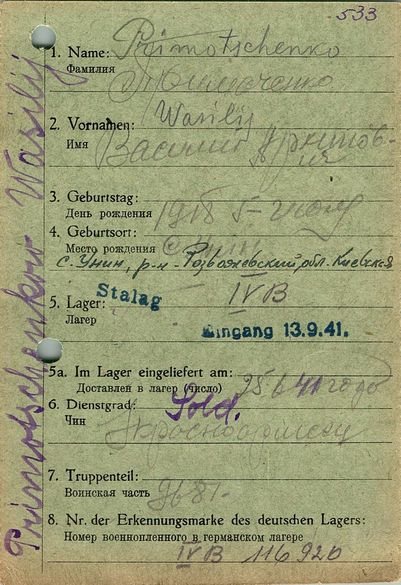 533
1. Name: Primotschenko
Фамилия
2. Vornamen: Wasilij
Имя Василий
3. Geburtstag:
День рождения 1918 5-
4. Geburtsort:
Место рождения с. Унин
с. Унин, р-н - Розважевский, обл. Киевская
5. Lager: Stalag IV B
Лагер
Eingang 13.9.41.
5a. Im Lager eingeliefert am:
Доставлен в лагер (число)
6. Dienstgrad: Sold.
Чин
7. Truppenteil:
Воинская часть
8. Nr. der Erkennungsmarke des deutschen Lagers:
Номер военнопленного в германском лагере
IV B 116920
Primotschenkow Wasilij